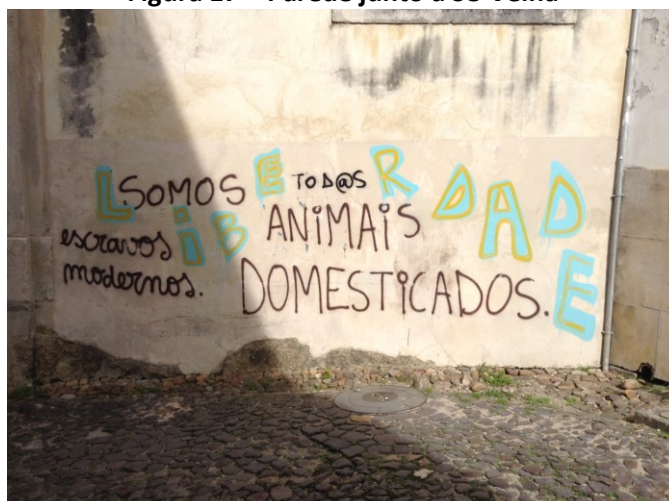 SOMOS TOD@S
ANiMAiS
DOMESTiCADOS.
escravos
modernos.
LiBERDADE